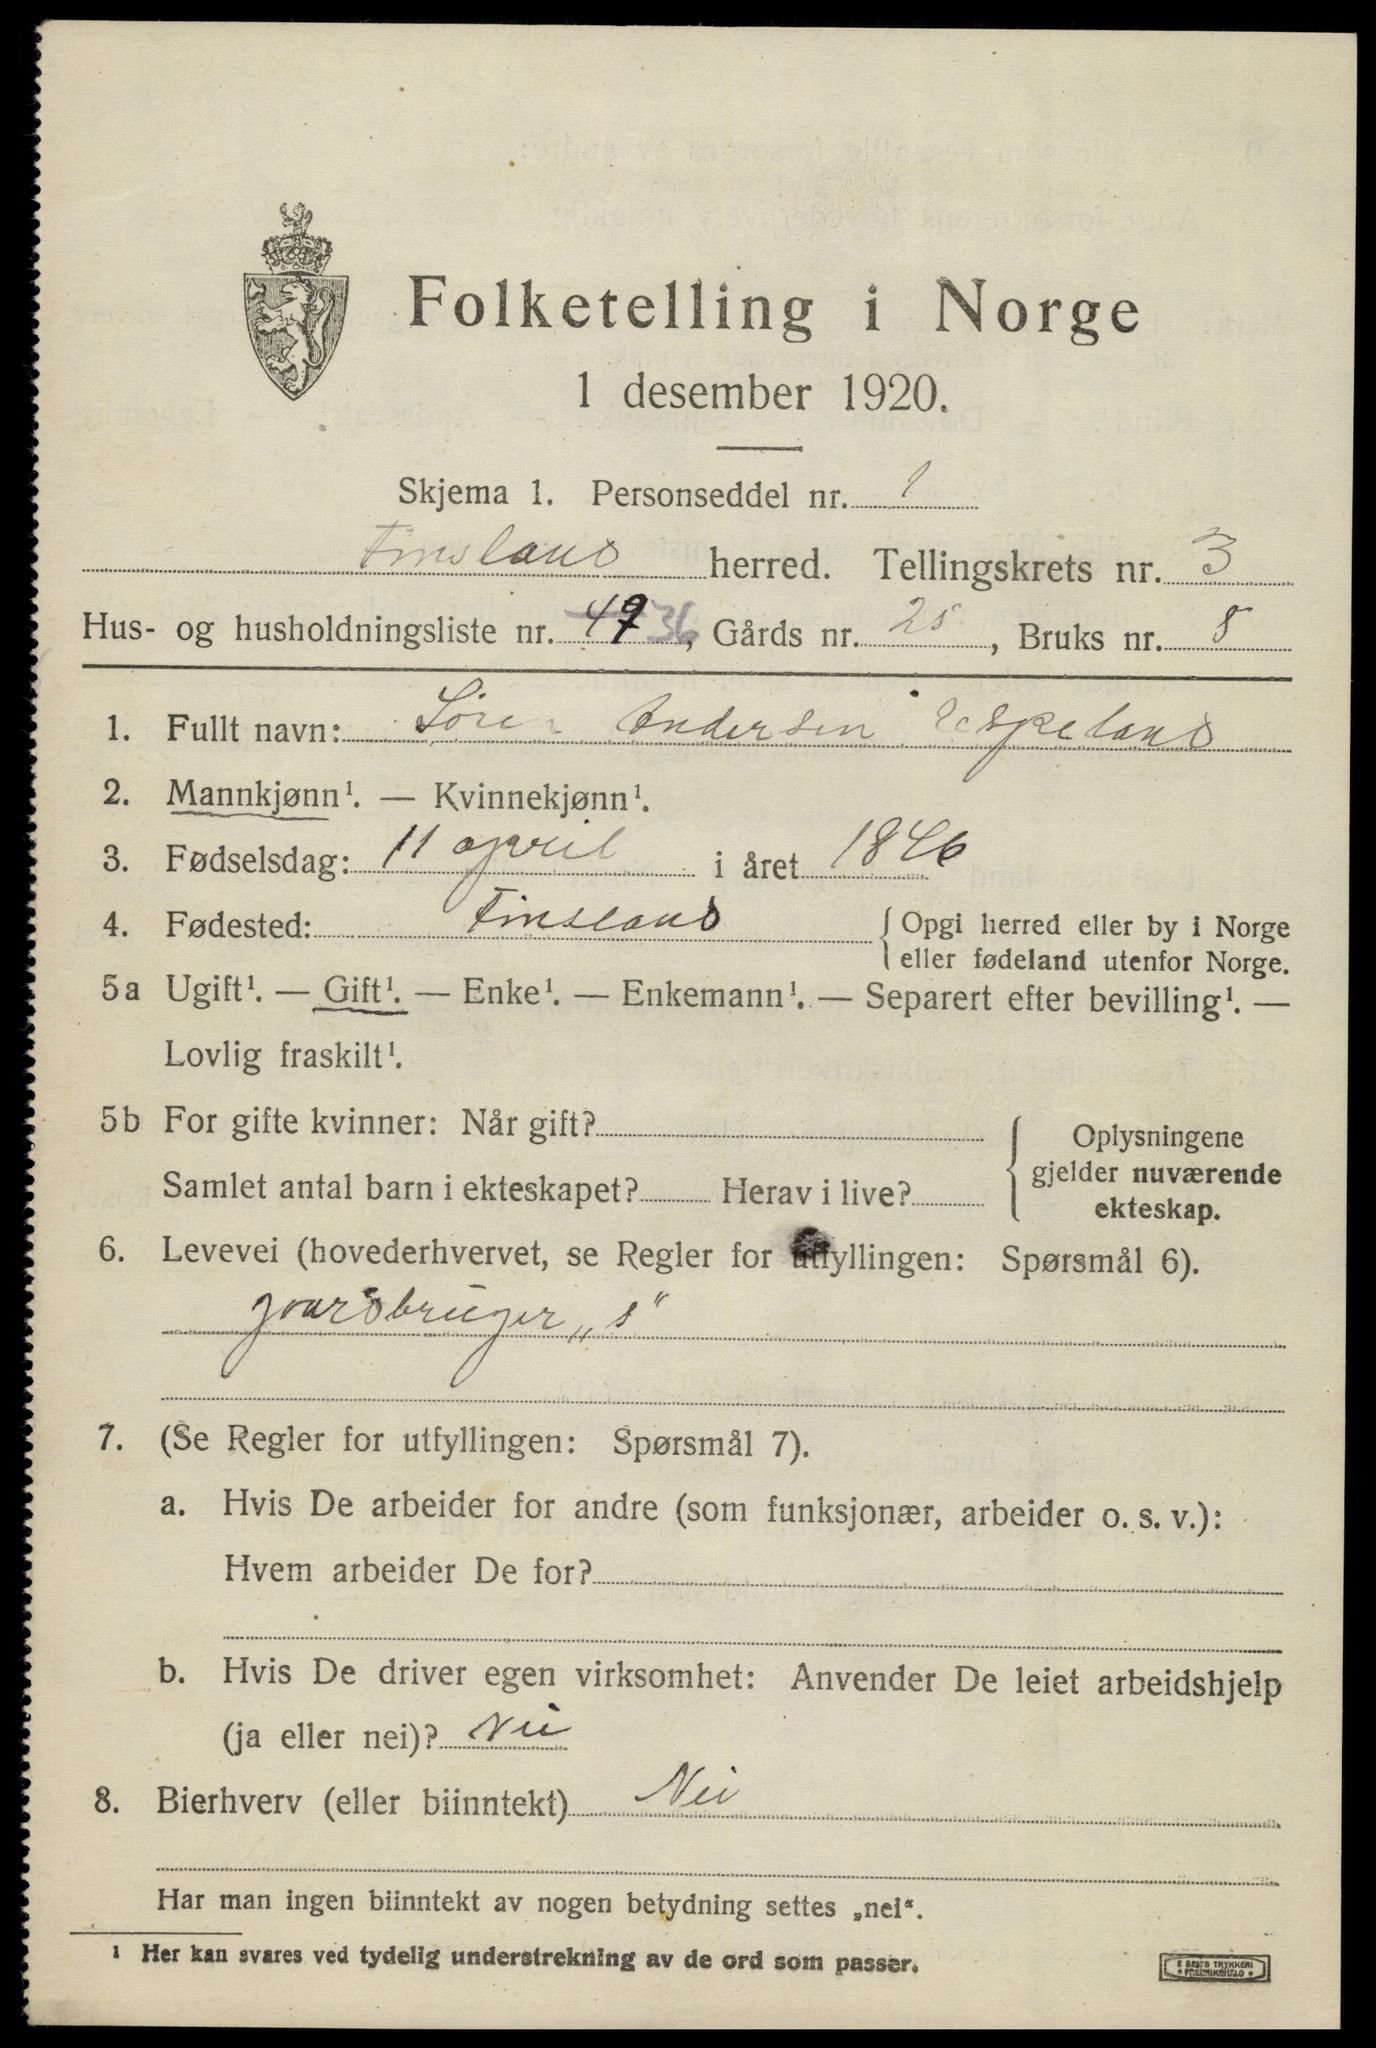 Folketelling i Norge
1 desember 1920.
Skjema 1. Personseddel nr. 1
Finsland herred. Tellingskrets nr. 3
Hus- og husholdningsliste nr. 49 36, Gårds nr. 25, Bruks nr. 8
1. Fullt navn: Sören Andersen Eskeland
2. Mannkjønn¹. — Kvinnekjønn¹.
3. Fødselsdag: 11 april i året 1846
4. Fødested: Finsland { Opgi herred eller by i Norge
eller fødeland utenfor Norge.
5a Ugift¹. — Gift¹. — Enke¹. — Enkemann¹. — Separert efter bevilling¹. —
Lovlig fraskilt¹.
5b For gifte kvinner: Når gift?
Samlet antal barn i ekteskapet? Herav i live?
{ Oplysningene
gjelder nuværende
ekteskap.
6. Levevei (hovederhvervet, se Regler for utfyllingen: Spørsmål 6).
gaardbruger „s"
7. (Se Regler for utfyllingen: Spørsmål 7).
a. Hvis De arbeider for andre (som funksjonær, arbeider o. s. v.):
Hvem arbeider De for?
b. Hvis De driver egen virksomhet: Anvender De leiet arbeidshjelp
(ja eller nei)? Nei
8. Bierhverv (eller biinntekt) Nei
Har man ingen biinntekt av nogen betydning settes „nei“.
¹ Her kan svares ved tydelig understrekning av de ord som passer.
E SEM'S TRYKKERI
FREDRIKSHALD